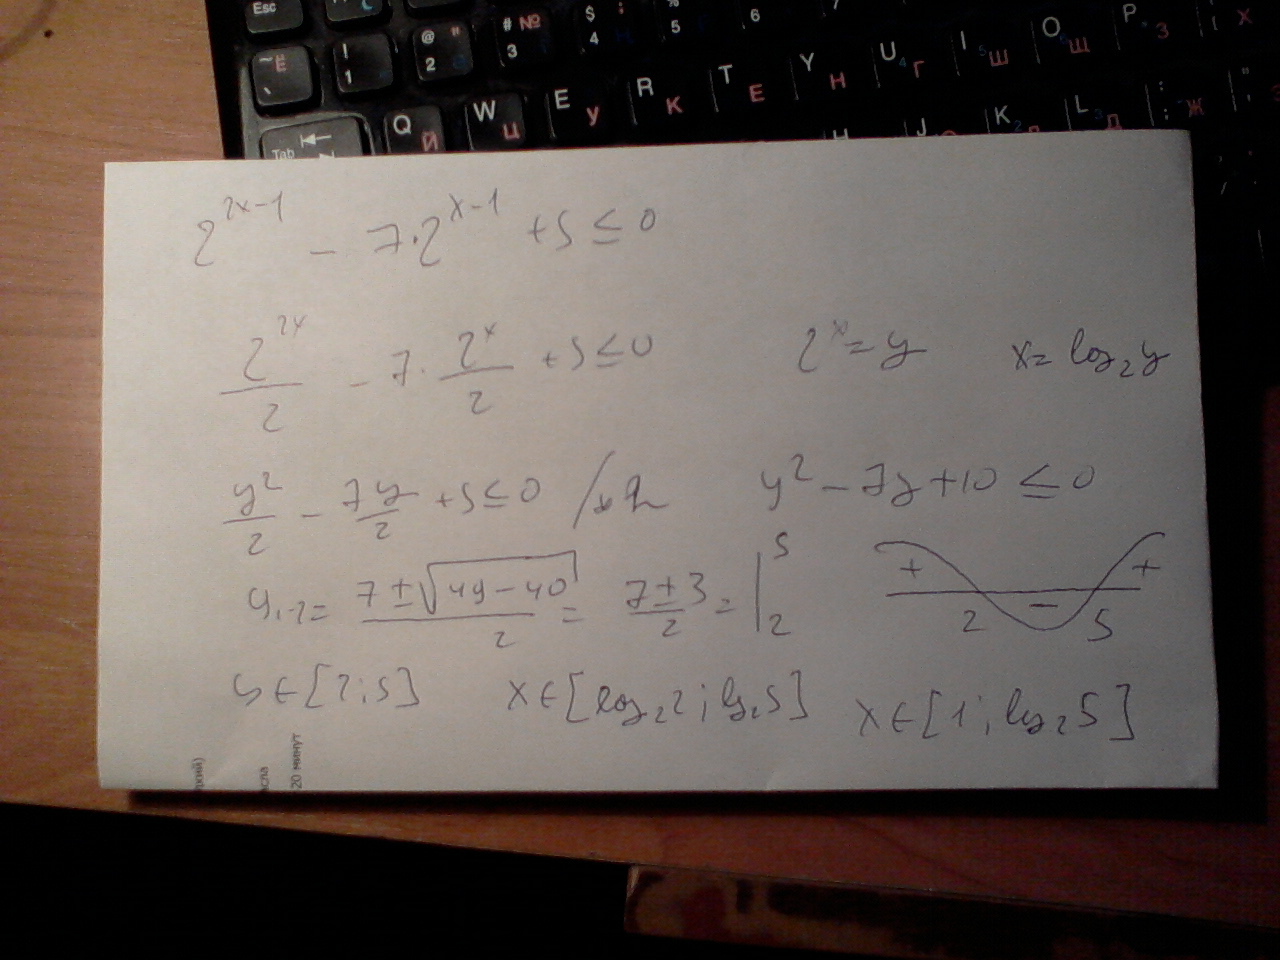 Esc
~ Ё ` ! 1 @ " 2 # № 3 $ ; 4 % 5 6
Tab Q Й W Ц E У R К T Е Y Н U Г I Ш O Щ P З Х
H J K L Д : ; Ж "
2^{2x-1} - 7·2^{x-1} + 5 ≤ 0
2^{2x}/2 - 7·2^x/2 + 5 ≤ 0 2^x = y x = log_2 y
y^2/2 - 7y/2 + 5 ≤ 0 /×2 y^2 - 7y + 10 ≤ 0
y_{1,2} = (7 ± √(49-40))/2 = (7 ± 3)/2 = | 5 2 + - + 2 5
y ∈ [2; 5] x ∈ [log_2 2; log_2 5] x ∈ [1; log_2 5]
20 минут